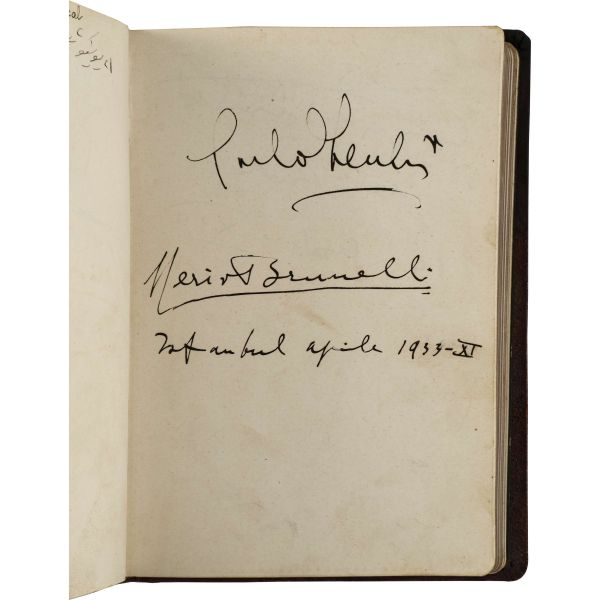 Carlo Zecchi
Nerio Brunelli
Istanbul aprile 1933-XI